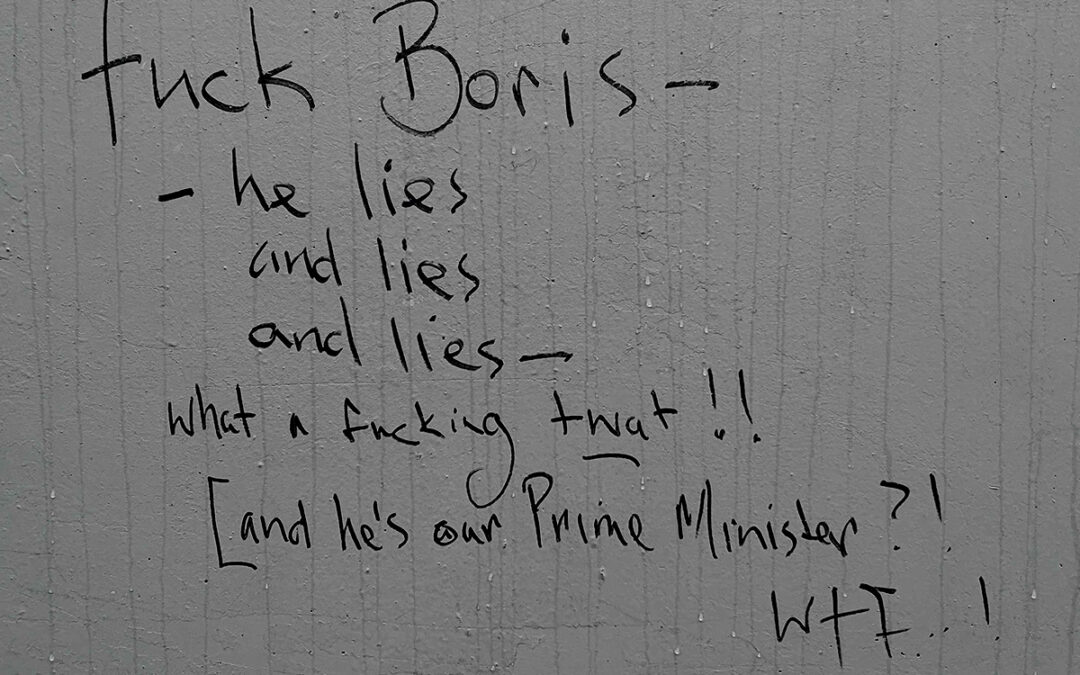 fuck Boris -
- he lies
and lies
and lies -
what a fucking twat!!
[and he's our Prime Minister?!
WTF..!